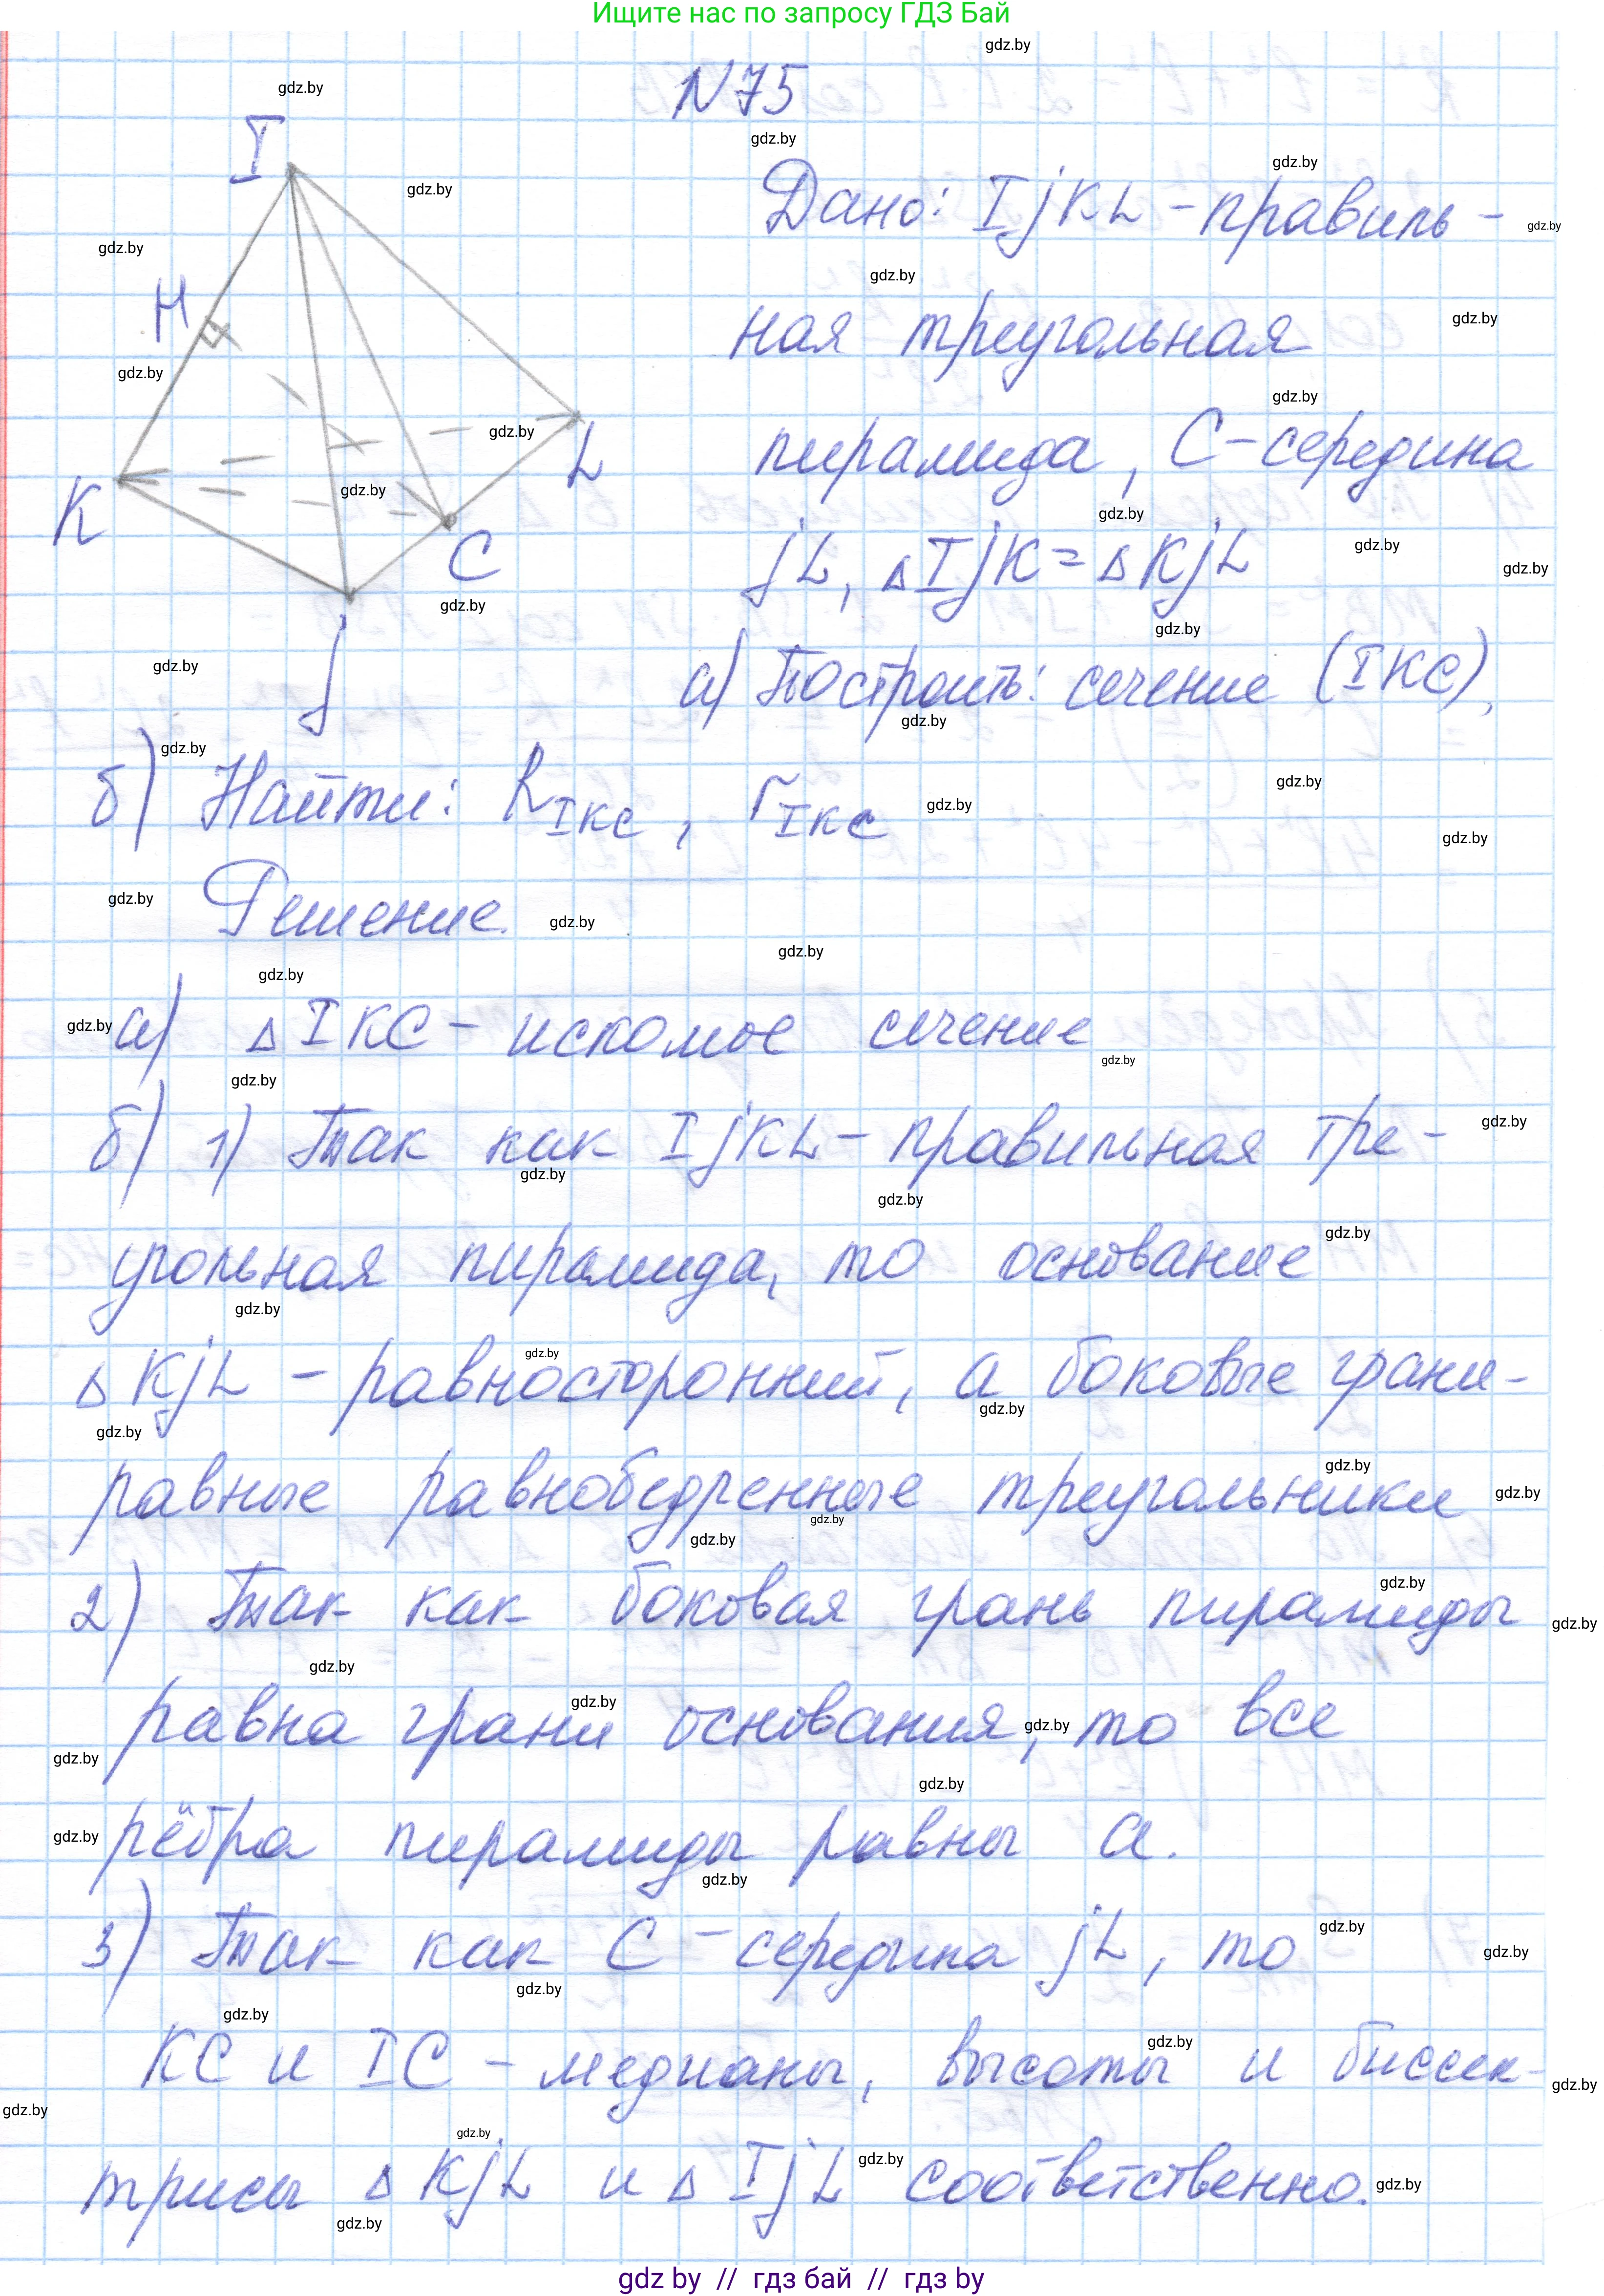 Ищите нас по запросу ГДЗ Бай
N 75
I
H
K
L
C
j
Дано: IjKL - правиль-
ная треугольная
пирамида, C - середина
jL, △IjK = △KjL
а) Построить: сечение (IKC),
б) Найти: R_IKC, r_IKC
Решение.
а) △IKC - искомое сечение
б) 1) Так как IjKL - правильная тре-
угольная пирамида, то основание
△KjL - равносторонний, а боковые грани -
равные равнобедренные треугольники
2) Так как боковая грань пирамиды
равна грани основания, то все
рёбра пирамиды равны a.
3) Так как C - середина jL, то
KC и IC - медианы, высоты и биссек-
трисы △KjL и △IjL соответственно.
gdz by // гдз бай // гдз by